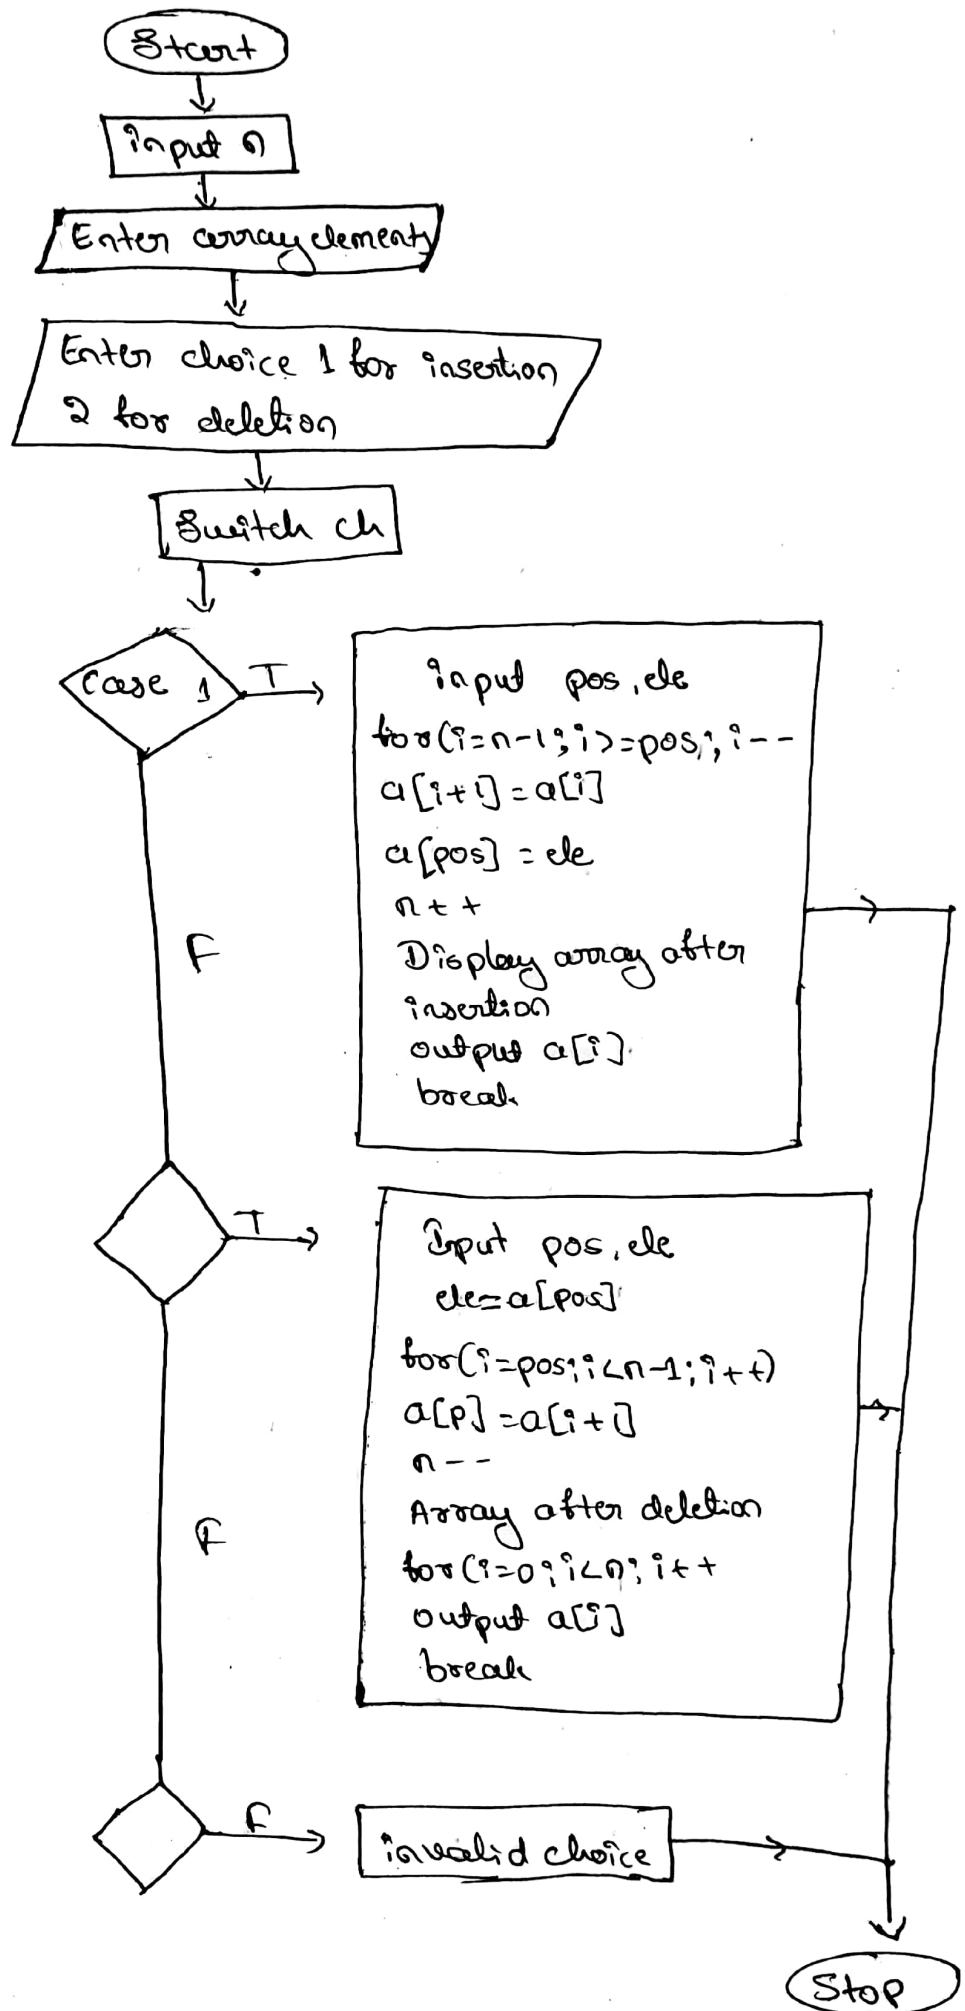 Start
input n
Enter array elements
Enter choice 1 for insertion
2 for deletion
Switch ch
Case 1
T
input pos, ele
for(i=n-1; i>=pos; i--
a[i+1]=a[i]
a[pos] = ele
n++
Display array after
insertion
output a[i]
break
F
T
Input pos, ele
ele=a[pos]
for(i=pos; i<n-1; i++)
a[p]=a[i+1]
n--
Array after deletion
for(i=0; i<n; i++
output a[i]
break
F
F
invalid choice
Stop